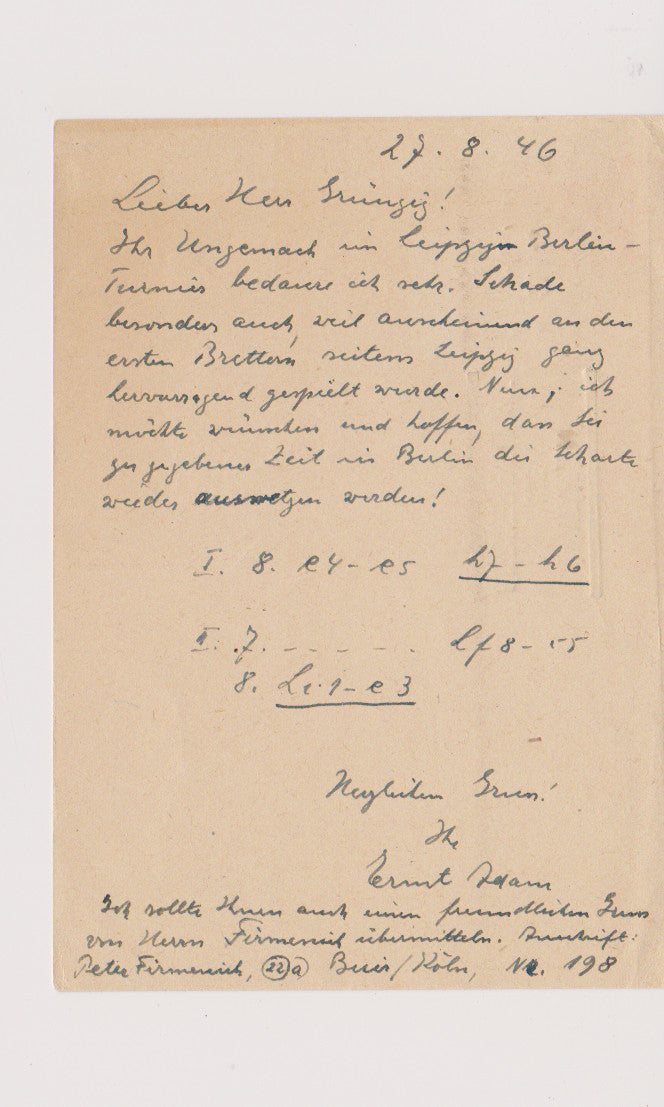 27. 8. 46
Lieber Herr Grünzig!
Ihr Ungemach im Leipzig Berlin-
Turnier bedaure ich sehr. Schade
besonders auch, weil anscheinend an den
ersten Brettern seitens Leipzig ganz
hervorragend gespielt wurde. Nun, ich
möchte wünschen und hoffen, dass Sie
zu gegebener Zeit in Berlin die Scharte
wieder auswetzen werden!
I. 8. e4 - e5 h7 - h6
7. - - - - - Lf8 -
8. Lc1 - e3
Herzlichen Gruss!
Ihr
Ernst Adam
Ich sollte Ihnen auch einen freundlichen Gruss
von Herrn Firmenich übermitteln. Anschrift:
Peter Firmenich, 22a Buir / Köln, Nr. 198